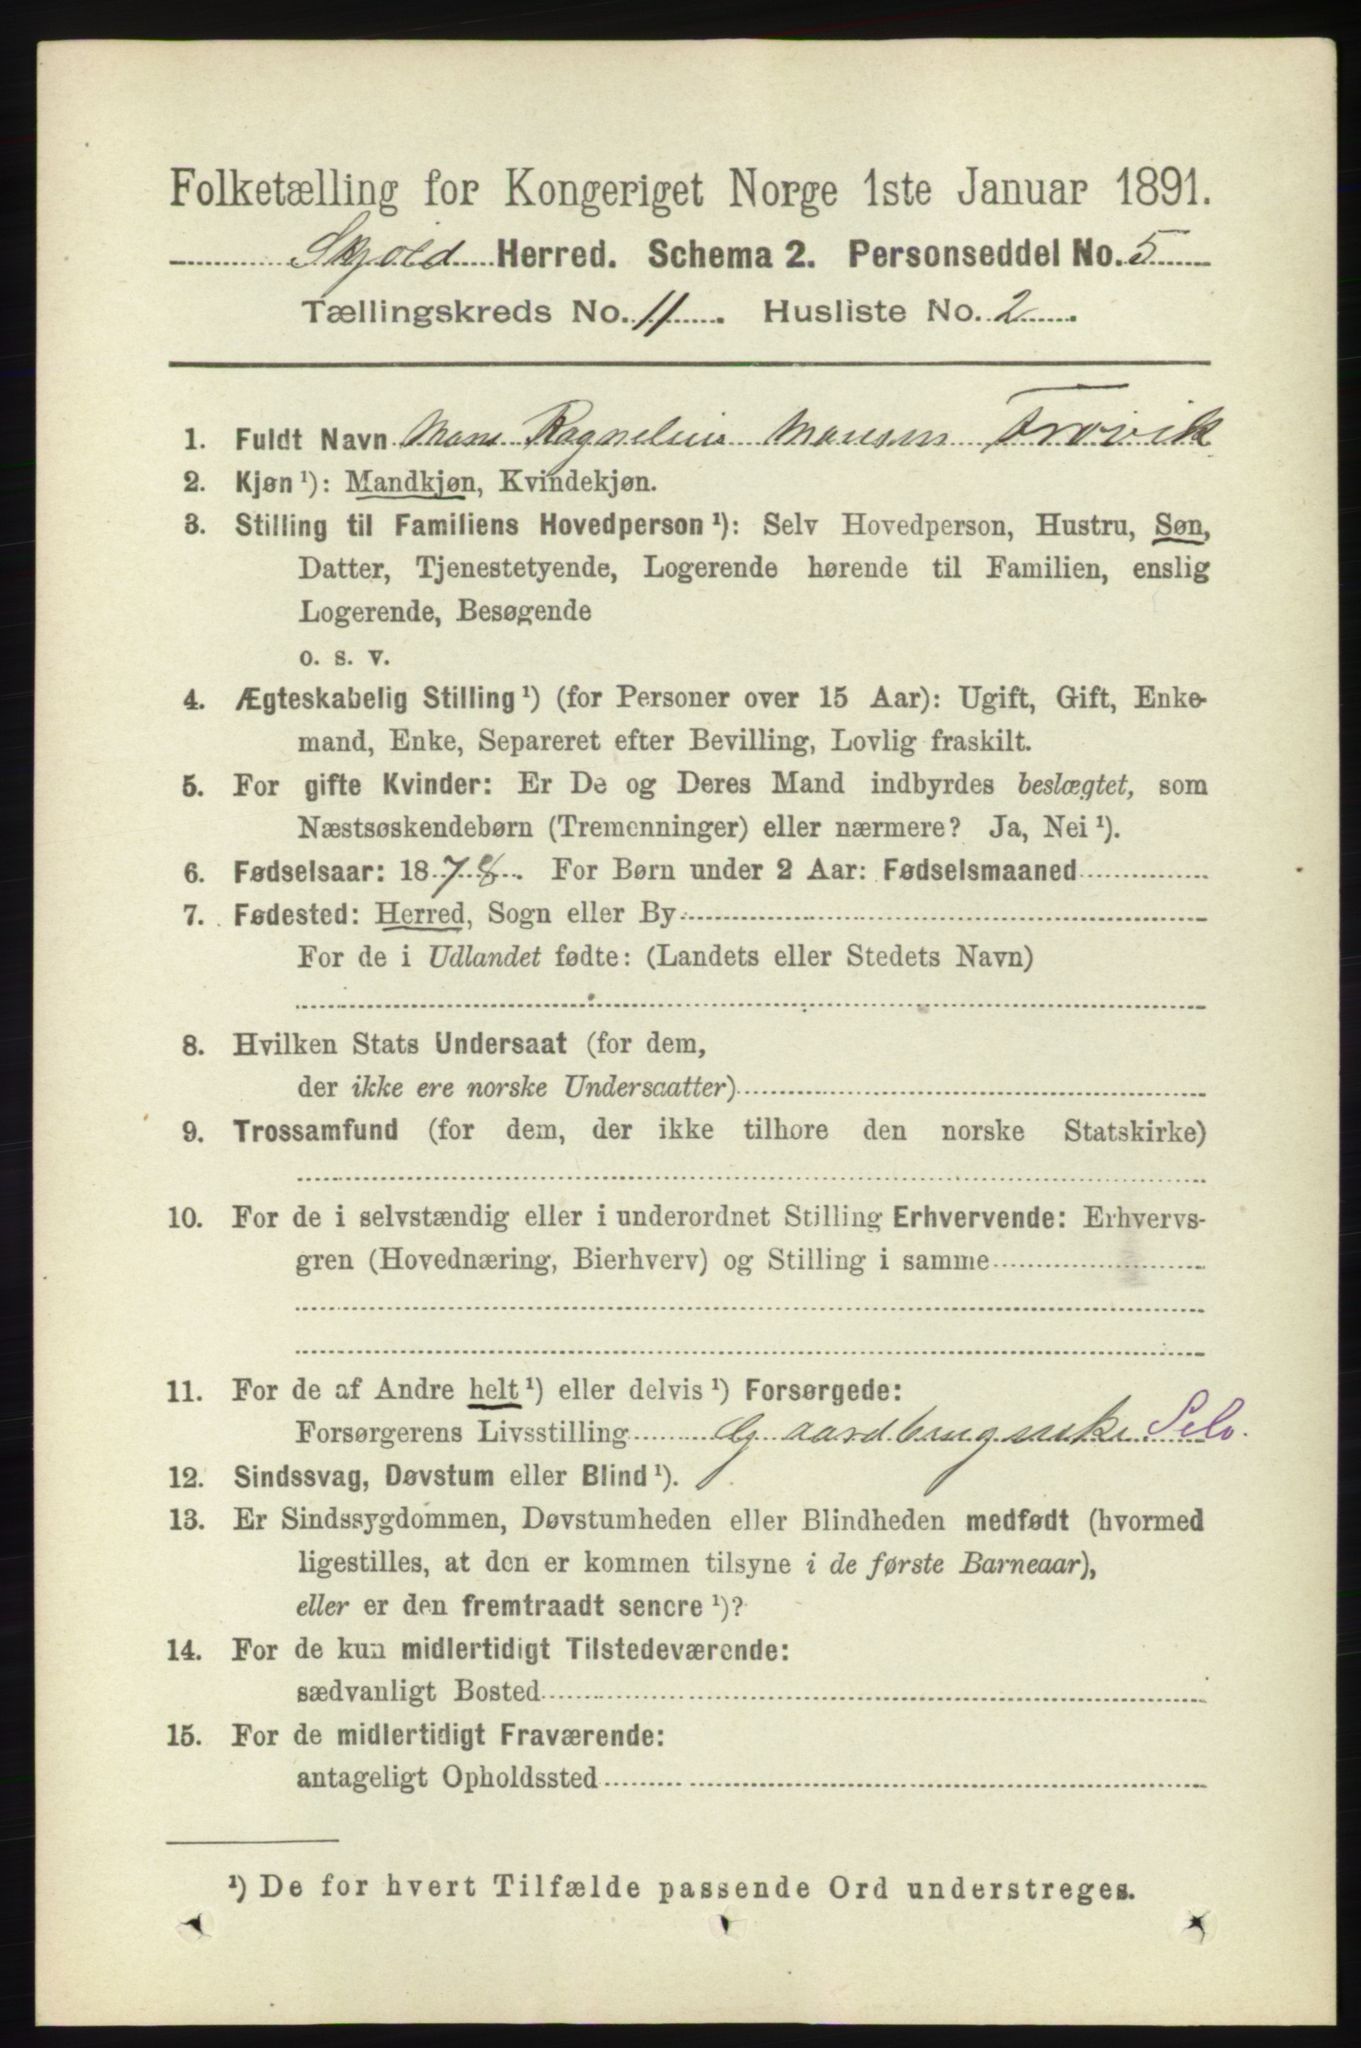 Folketælling for Kongeriget Norge 1ste Januar 1891.
Skjold Herred. Schema 2. Personseddel No. 5
Tællingskreds No. 11. Husliste No. 2.
1. Fuldt Navn Mons Monsen Frøvik
2. Kjøn ¹): Mandkjøn, Kvindekjøn.
3. Stilling til Familiens Hovedperson ¹): Selv Hovedperson, Hustru, Søn,
Datter, Tjenestetyende, Logerende hørende til Familien, enslig
Logerende, Besøgende
o. s. v.
4. Ægteskabelig Stilling ¹) (for Personer over 15 Aar): Ugift, Gift, Enke-
mand, Enke, Separeret efter Bevilling, Lovlig fraskilt.
5. For gifte Kvinder: Er De og Deres Mand indbyrdes beslægtet, som
Næstsøskendebørn (Tremenninger) eller nærmere? Ja, Nei ¹).
6. Fødselsaar: 1878. For Børn under 2 Aar: Fødselsmaaned
7. Fødested: Herred, Sogn eller By
For de i Udlandet fødte: (Landets eller Stedets Navn)
8. Hvilken Stats Undersaat (for dem,
der ikke ere norske Undersaatter)
9. Trossamfund (for dem, der ikke tilhøre den norske Statskirke)
10. For de i selvstændig eller i underordnet Stilling Erhvervende: Erhvervs-
gren (Hovednæring, Bierhverv) og Stilling i samme
11. For de af Andre helt ¹) eller delvis ¹) Forsørgede:
Forsørgerens Livsstilling Gaardbrugerske Selv.
12. Sindssvag, Døvstum eller Blind ¹).
13. Er Sindssygdommen, Døvstumheden eller Blindheden medfødt (hvormed
ligestilles, at den er kommen tilsyne i de første Barneaar),
eller er den fremtraadt senere ¹)?
14. For de kun midlertidigt Tilstedeværende:
sædvanligt Bosted
15. For de midlertidigt Fraværende:
antageligt Opholdssted
¹) De for hvert Tilfælde passende Ord understreges.